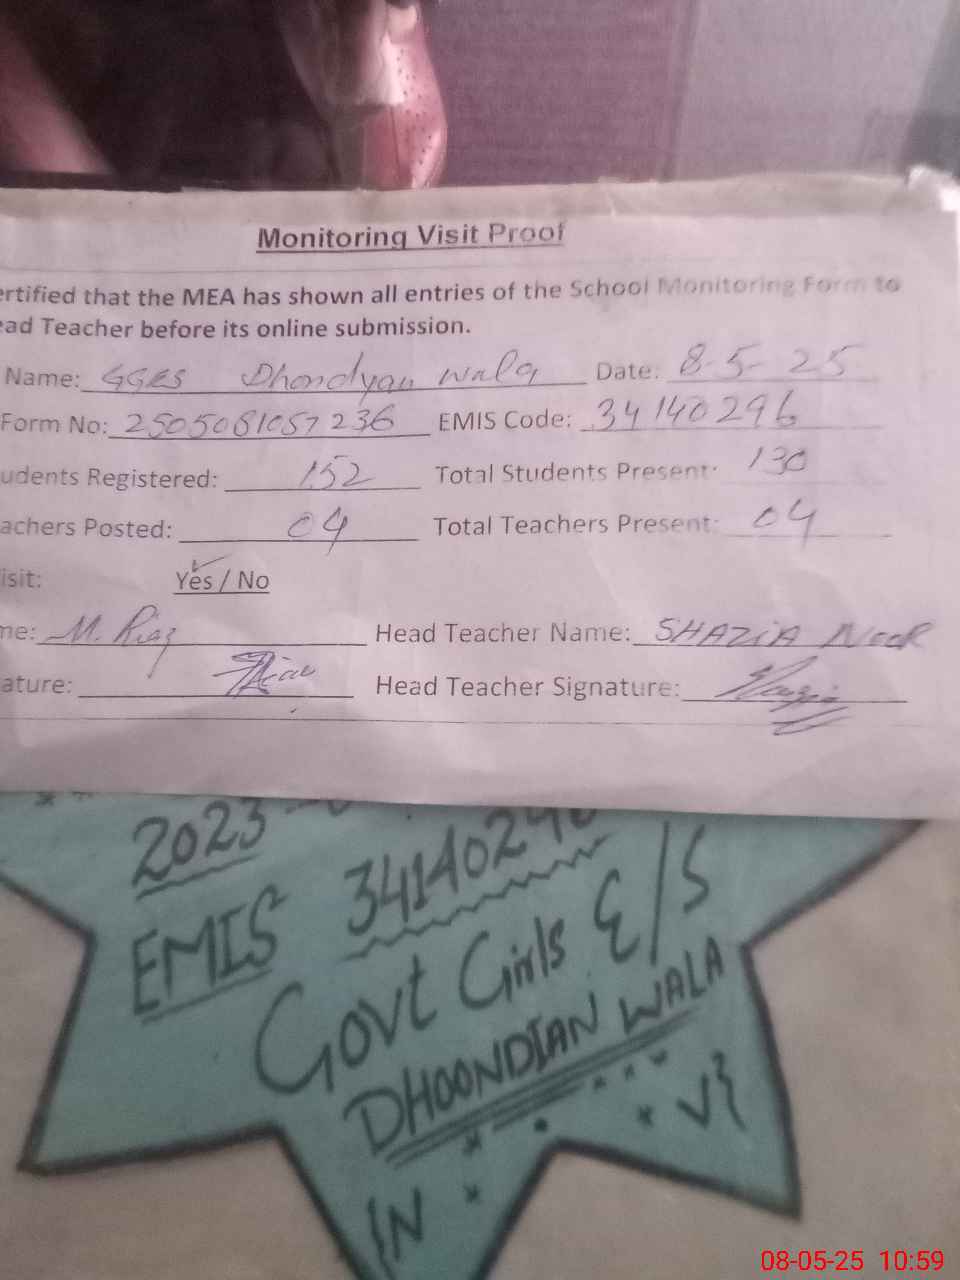 Monitoring Visit Proof
ertified that the MEA has shown all entries of the School Monitoring Form to
ead Teacher before its online submission.
Name: GGES Dhondyan wala Date: 8-5-25
Form No: 2505081057236 EMIS Code: 34140296
udents Registered: 152 Total Students Present: 130
achers Posted: 04 Total Teachers Present: 04
isit: Yes / No
me: M. Riaz Head Teacher Name: SHAZIA NOOR
ature: Riaz Head Teacher Signature: Shazia
2023-
EMIS 34140296
Govt Girls E/S
DHOONDIAN WALA
IN
08-05-25 10:59